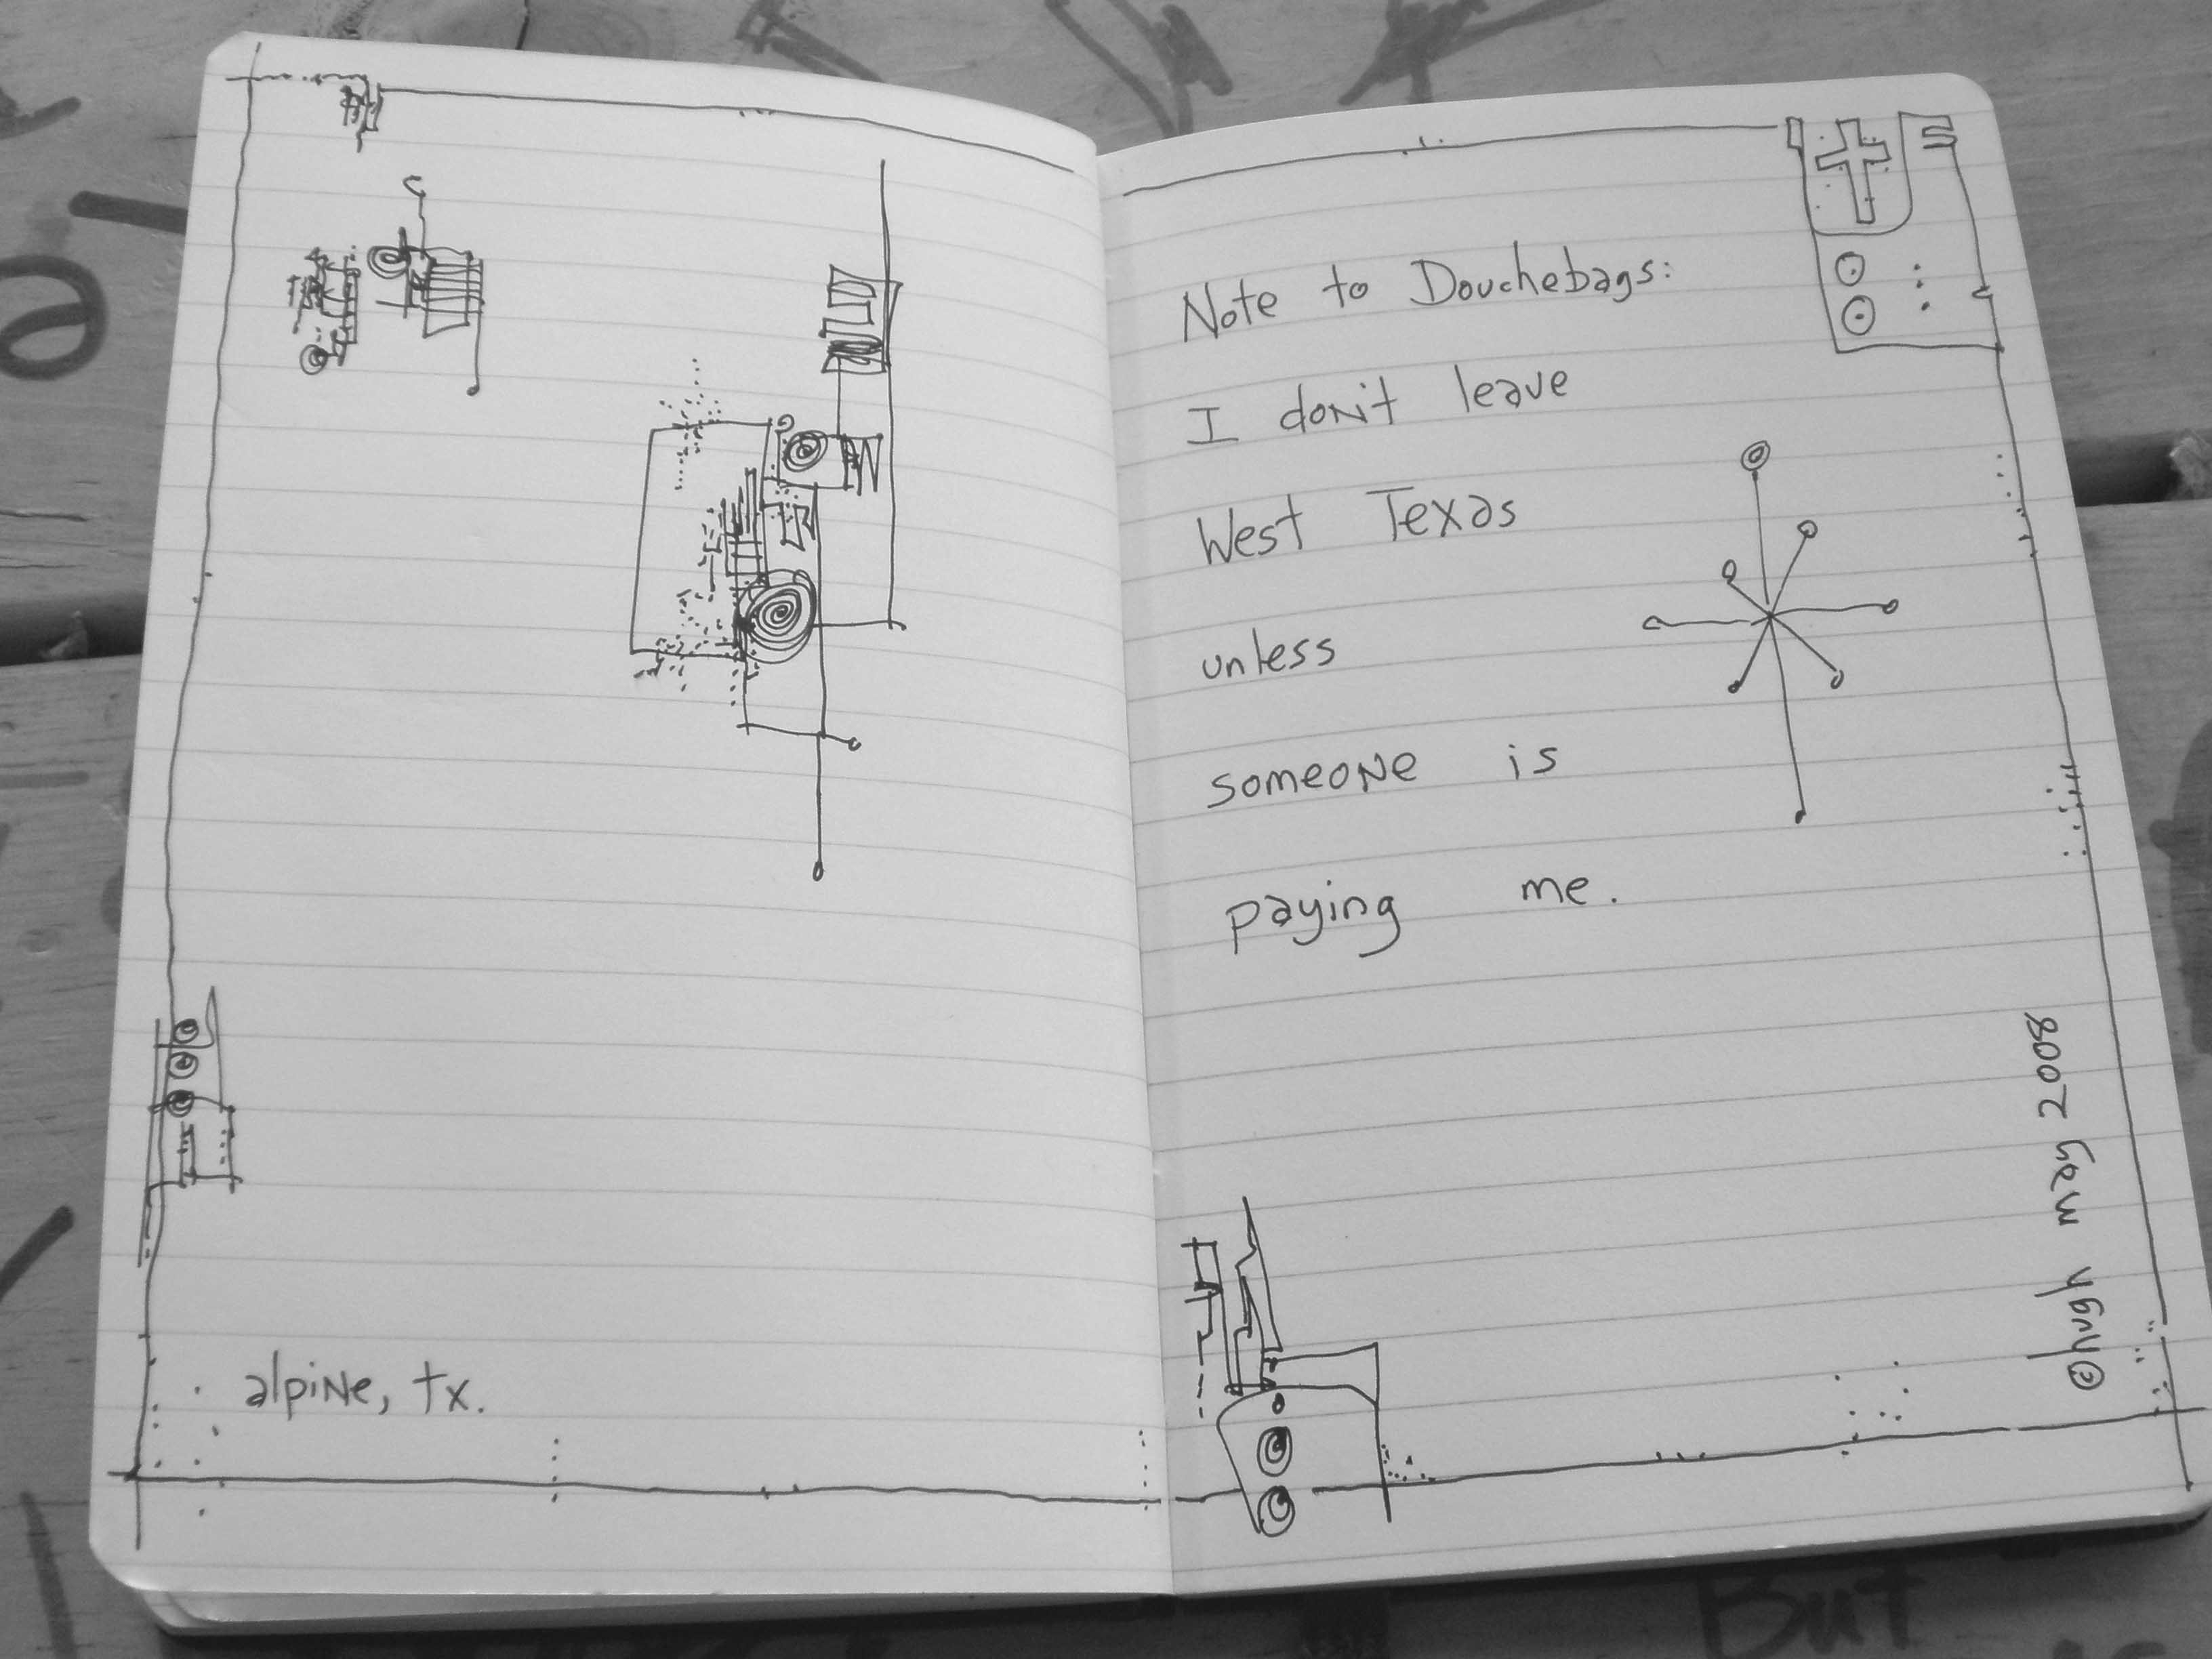 alpine, tx.
Note to Douchebags:
I don't leave
West Texas
unless
someone is
paying me.
©hugh may 2008
But